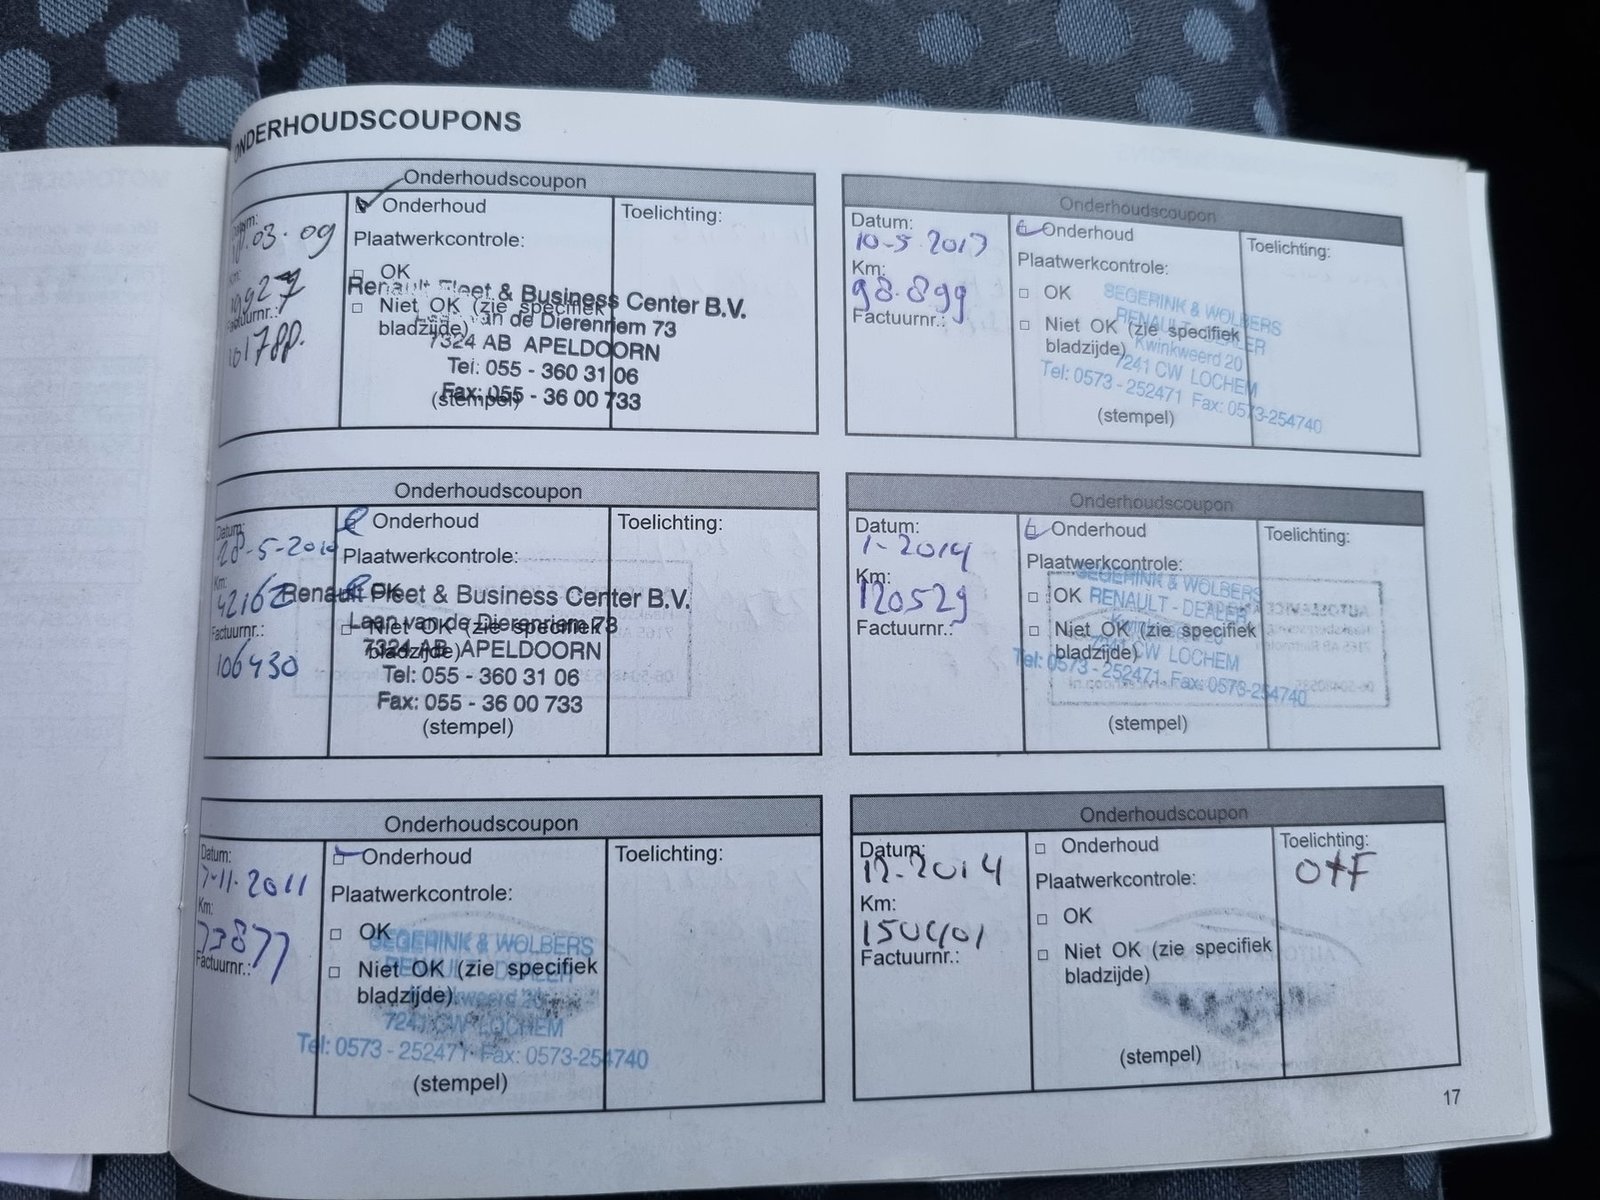 ONDERHOUDSCOUPONS
Onderhoudscoupon
Datum:
03.09
Km:
10927
Factuurnr.:
Onderhoud
Plaatwerkcontrole:
OK
Niet OK (zie specifiek
bladzijde)
Renault Fleet & Business Center B.V.
Laan van de Dierenriem 73
7324 AB APELDOORN
Tel: 055 - 360 31 06
Fax: 055 - 36 00 733
(stempel)
Toelichting:
Onderhoudscoupon
Datum:
10-5-2013
Km:
98.899
Factuurnr.:
Onderhoud
Plaatwerkcontrole:
OK
Niet OK (zie specifiek
bladzijde)
SEGERINK & WOLBERS
RENAULT - DEALER
Kwinkweerd 20
7241 CW LOCHEM
Tel: 0573 - 252471 Fax: 0573-254740
(stempel)
Toelichting:
Onderhoudscoupon
Datum:
20-5-2010
Km:
42162
Factuurnr.:
106430
Onderhoud
Plaatwerkcontrole:
OK
Niet OK (zie specifiek
bladzijde)
Renault Fleet & Business Center B.V.
Laan van de Dierenriem 73
7324 AB APELDOORN
Tel: 055 - 360 31 06
Fax: 055 - 36 00 733
(stempel)
Toelichting:
Onderhoudscoupon
Datum:
1-2014
Km:
120529
Factuurnr.:
Onderhoud
Plaatwerkcontrole:
OK
Niet OK (zie specifiek
bladzijde)
SEGERINK & WOLBERS
RENAULT - DEALER
Kwinkweerd 20
7241 CW LOCHEM
Tel: 0573 - 252471 Fax: 0573-254740
(stempel)
Toelichting:
Onderhoudscoupon
Datum:
7-11-2011
Km:
73877
Factuurnr.:
Onderhoud
Plaatwerkcontrole:
OK
Niet OK (zie specifiek
bladzijde)
SEGERINK & WOLBERS
RENAULT - DEALER
Kwinkweerd 20
7241 CW LOCHEM
Tel: 0573 - 252471 Fax: 0573-254740
(stempel)
Toelichting:
Onderhoudscoupon
Datum:
12-2014
Km:
Factuurnr.:
Onderhoud
Plaatwerkcontrole:
OK
Niet OK (zie specifiek
bladzijde)
(stempel)
Toelichting:
O+F
17